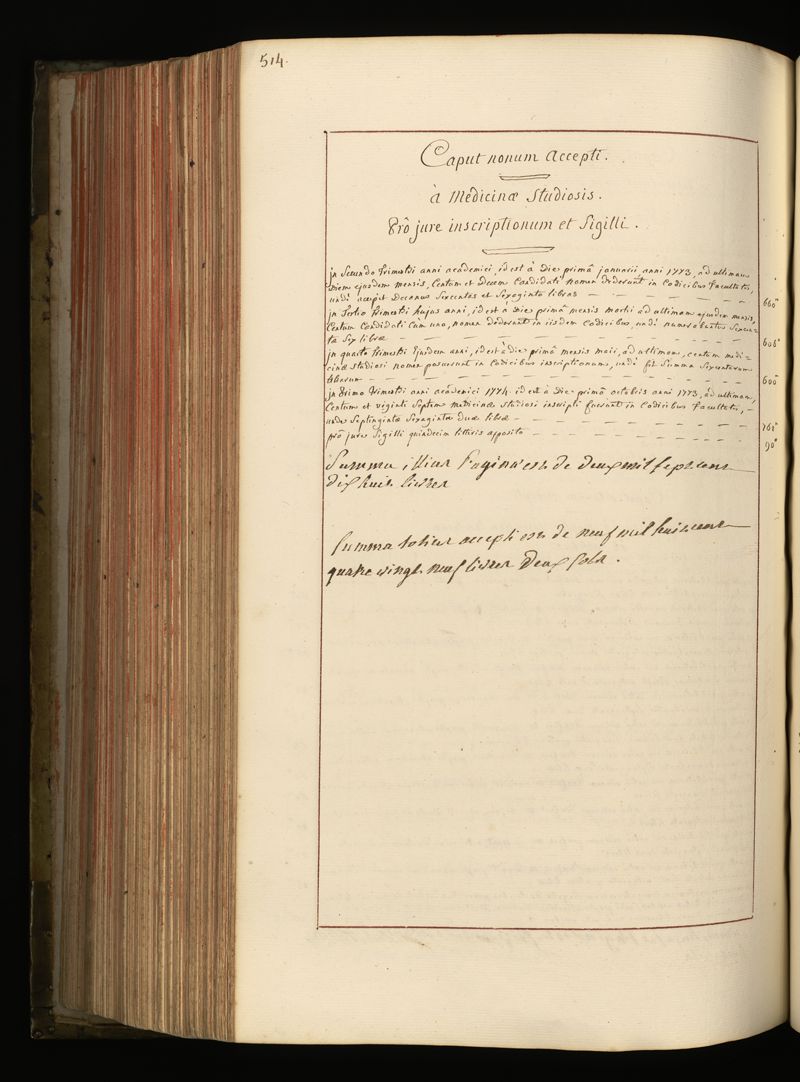 514.
Caput nonum Accepti.
à Medicinæ Studiosis.
Prô jure inscriptionum et Sigilli.
jn Secundo trimestri anni academici, id est à Die primâ januarii anni 1773, ad ultimam
Diem ejusdem mensis, Centum et Decem Candidati nomen dederunt in Codicibus facultatis,
undè accepit Decanus Sexcentas et Sexaginta libras — 660
jn tertio trimestri hujus anni, id est à Die primâ mensis martii ad ultimam ejusdem mensis,
Centum Candidati Cum uno, nomen dederunt in iisdem Codicibus, undè numerabuntur Sexcen-
tæ Sex libræ — 606
jn quarto trimestri Ejusdem anni, id est à die primâ mensis maii, ad ultimam, centum medi-
cinæ Studiosi nomen posuerunt in Codicibus inscriptionum, undè fit Summa Sexcentarum
librarum — 600
jn primo trimestri anni academici 1774 id est à Die primâ octobris anni 1773, ad ultimam,
Centum et viginti Septem medicinæ Studiosi inscripti fuerunt in Codicibus facultatis, —
undè Septingintæ Sexaginta duæ libræ — 762
prô jure Sigilli quindecim litteris apposito — 90
Summa illius Paginæ est de deux mil sept cent
dix huit livres
Summa totius accepti est de neuf mil huit cent
quatre vingt neuf livres Deux Sols.